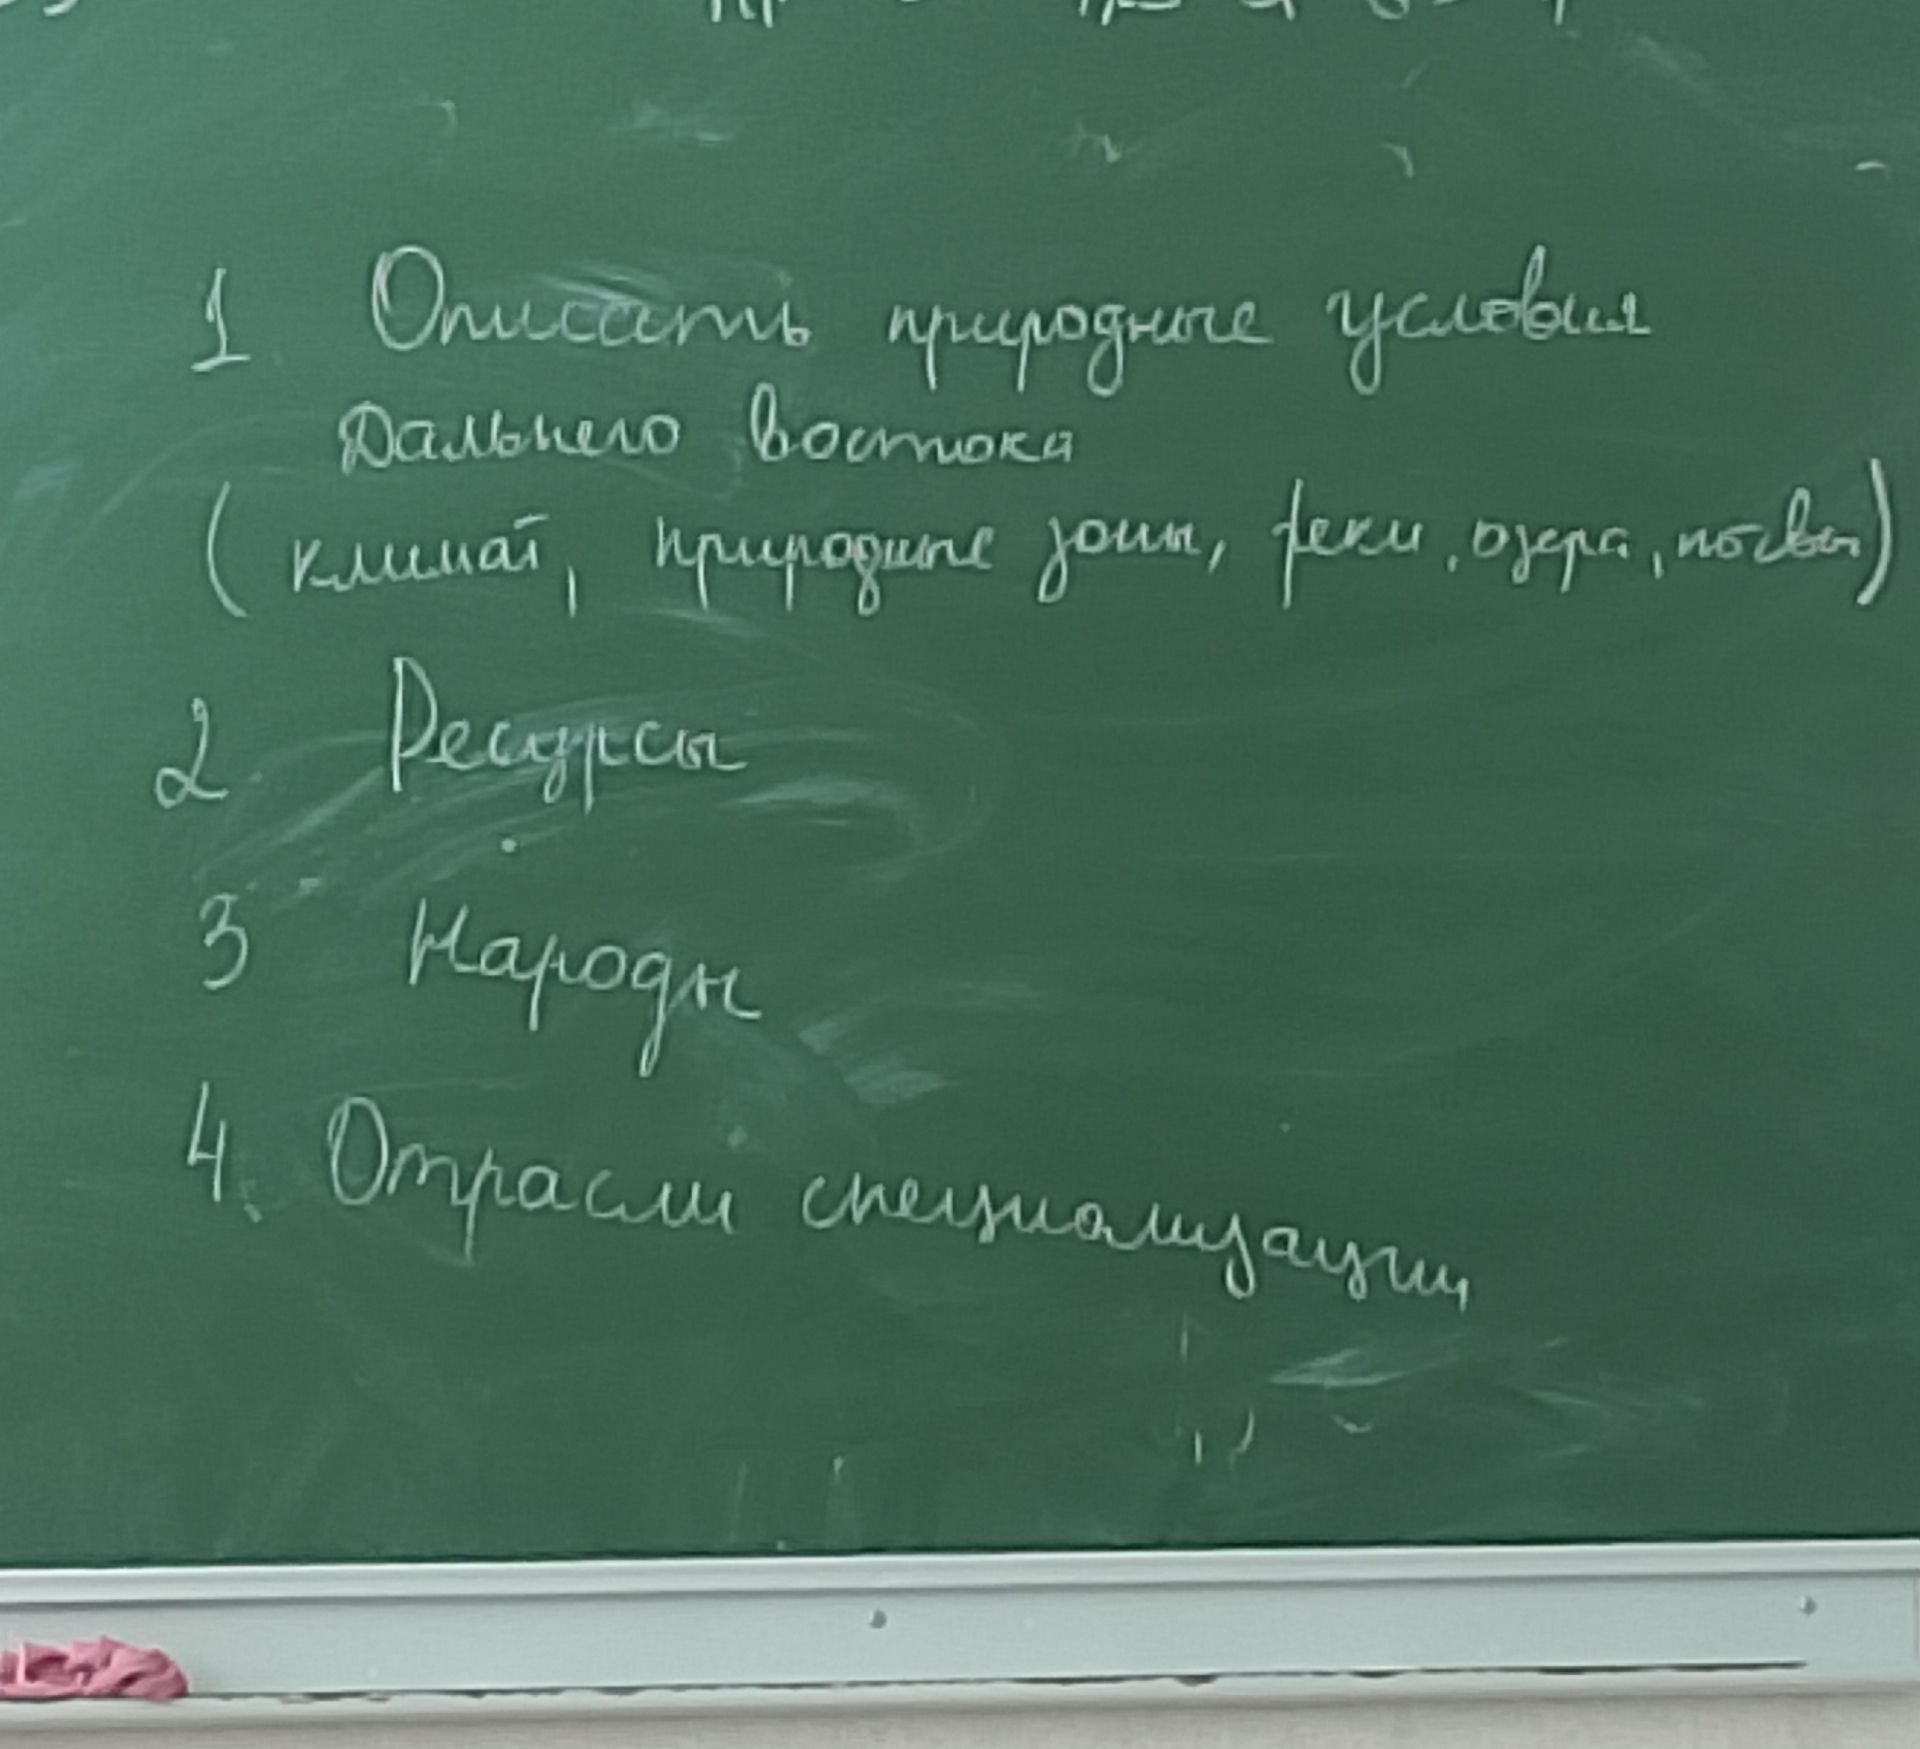 1 Описать природные условия
Дальнего Востока
(климат, природные зоны, реки, озера, почвы)
2 Ресурсы
3 Народы
4. Отрасли специализации